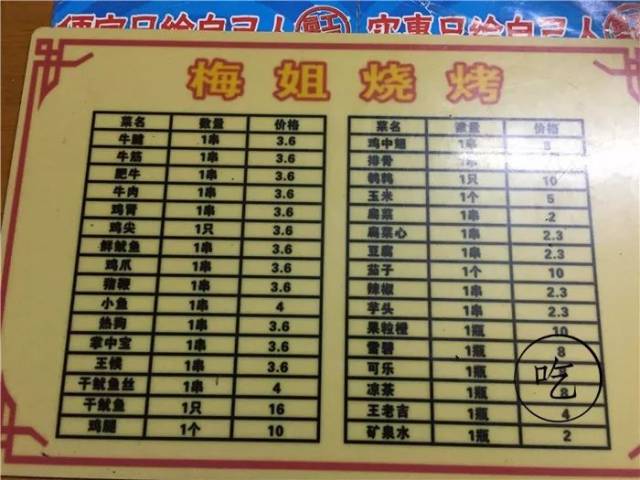 梅姐烧烤
菜名 数量 价格
牛腱 1串 3.6
牛筋 1串 3.6
肥牛 1串 3.6
牛肉 1串 3.6
鸡胃 1串 3.6
鸡尖 1只 3.6
鲜鱿鱼 1串 3.6
鸡爪 1串 3.6
猪鞭 1串 3.6
小鱼 1串 4
热狗 1串 3.6
掌中宝 1串 3.6
王候 1串 3.6
干鱿鱼丝 1串 4
干鱿鱼 1只 16
鸡腿 1个 10
菜名 数量 价格
鸡中翅 1串 8
排骨 1串
鹌鹑 1只 10
玉米 1个 5
扁菜 1串 .2
扁菜心 1串 2.3
豆腐 1串 2.3
茄子 1个 10
辣椒 1串 2.3
芋头 1串 2.3
果粒橙 1瓶 10
雪碧 1瓶 8
可乐 1瓶
凉茶 1瓶 8
王老吉 1瓶 4
矿泉水 1瓶 2
吃